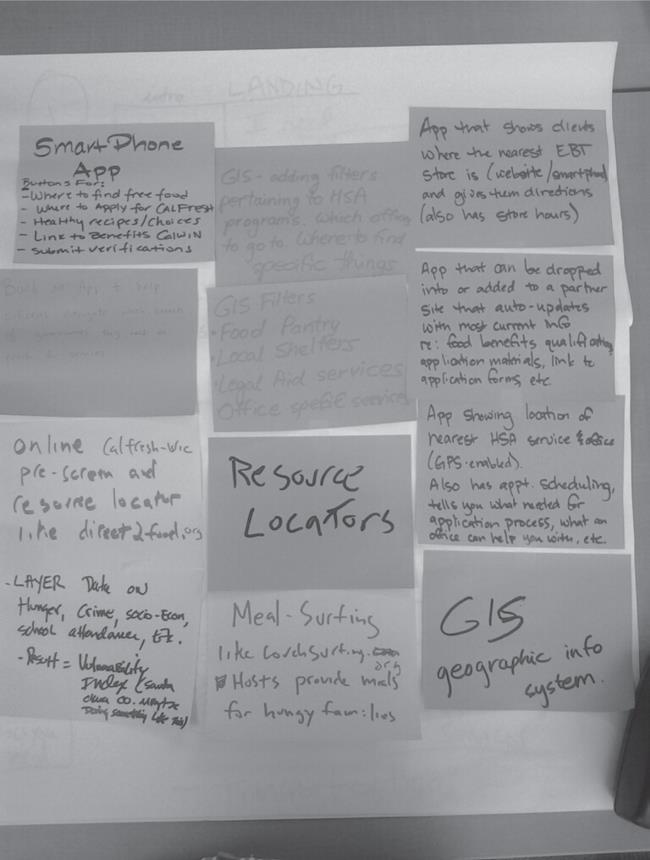 LANDING
SmartPhone
App
Buttons For:
- Where to find free food
- Where to Apply for CALFresh
- Healthy recipes/choices
- Link to Benefits CalWIN
- Submit verifications
GIS - adding filters
pertaining to HSA
programs. Which office
to go to. Where to find
specific things
App that shows clients
where the nearest EBT
store is (website/smartphone)
and gives them directions
(also has store hours)
Build an App to help
citizens navigate which branch
of government they need to
GIS Filters
• Food Pantry
• Local Shelters
• Legal Aid services
Office specific services
App that can be dropped
into or added to a partner
site that auto-updates
with most current info
re: food benefits qualification,
application materials, link to
application forms, etc
Online Calfresh-WIC
pre-screen and
resource locator
like direct2food.org
Resource
Locators
App showing location of
nearest HSA service & office
(GPS-enabled).
Also has appt. scheduling,
tells you what needed for
application process, what an
office can help you with, etc.
- LAYER Data on
Hunger, Crime, socio-Econ,
school attendance, etc.
- Result = Vulnerability
Index (Santa
Clara Co. maybe
doing something like this)
Meal-Surfing
like CouchSurfing.org
Hosts provide meals
for hungry families
GIS
geographic info
system.